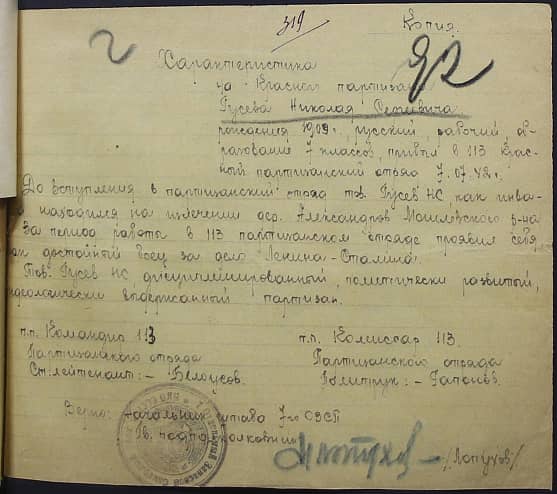 319
Копия.
Характеристика
на Красного партизана
Гусева Николая Сергеевича
рождения 1909г., русский, рабочий, об-
разование 7 классов, прибыл в 113 крас-
ный партизанский отряд 7.07.42г.
До вступления в партизанский отряд тов. Гусев НС, как инва-
находился на излечении
За период работы в 113 партизанском отряде проявил себя
как достойный боец за дело Ленина-Сталина.
Тов. Гусев НС, дисциплинированный, политически развитый,
идеологически выдержанный партизан.
п.п. Командир 113
Партизанского отряда
Ст. лейтенант: - Белоусов.
п.п. Комиссар 113.
Партизанского отряда
Политрук: - Гапонов.
Верно: Начальник штаба 7го ОЗСП
Гв. подполковник
/Лопухов/